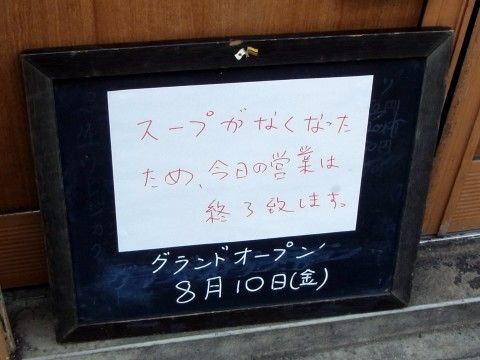 スープがなくなった
ため、今日の営業は
終了致します。
グランドオープン
8月10日(金)